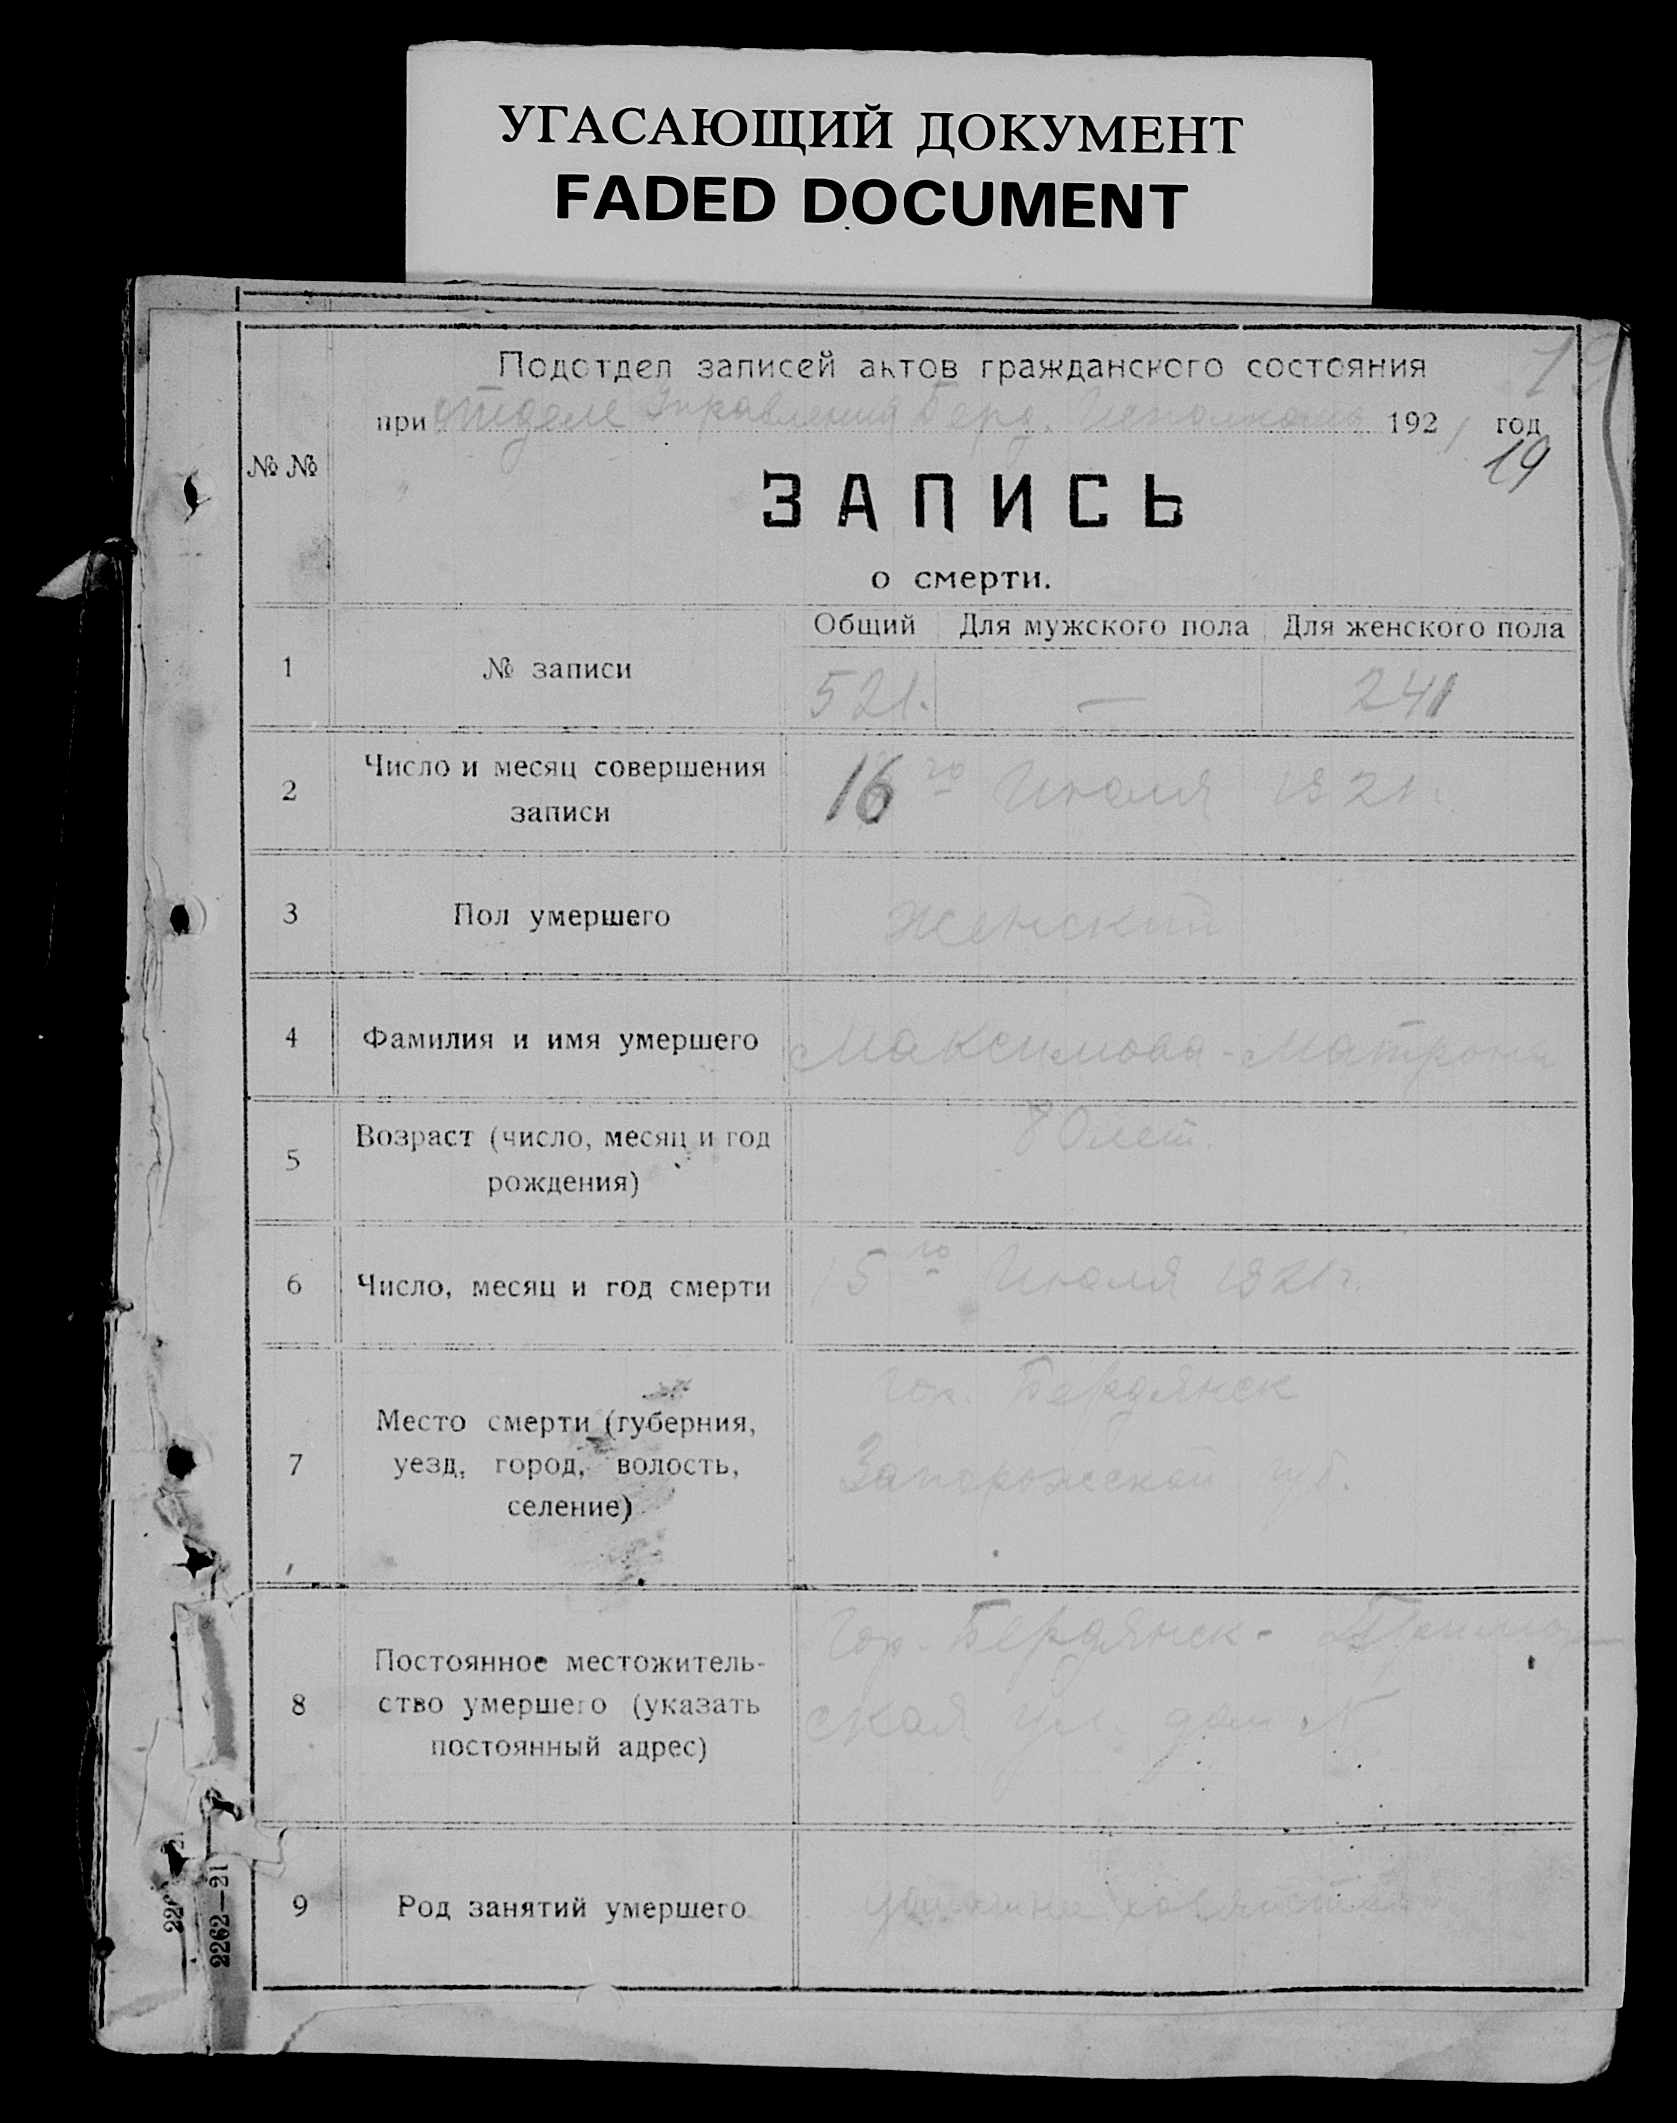 УГАСАЮЩИЙ ДОКУМЕНТ
FADED DOCUMENT
Подотдел записей актов гражданского состояния
при отделе Управления Берд. Исполкома 1921 год
19
№ №
ЗАПИСЬ
о смерти.
Общий Для мужского пола Для женского пола
1 № записи 521. — 241
2 Число и месяц совершения записи 16го Июля 1921г.
3 Пол умершего Женский
4 Фамилия и имя умершего Максимова - Матрона
5 Возраст (число, месяц и год рождения) 70 лет.
6 Число, месяц и год смерти 15го Июля 1921г.
7 Место смерти (губерния, уезд, город, волость, селение)
гор. Бердянск
Запорожской губ.
8 Постоянное местожительство умершего (указать постоянный адрес)
Гор. Бердянск -
ская ул. дом №
9 Род занятий умершего
2262—21